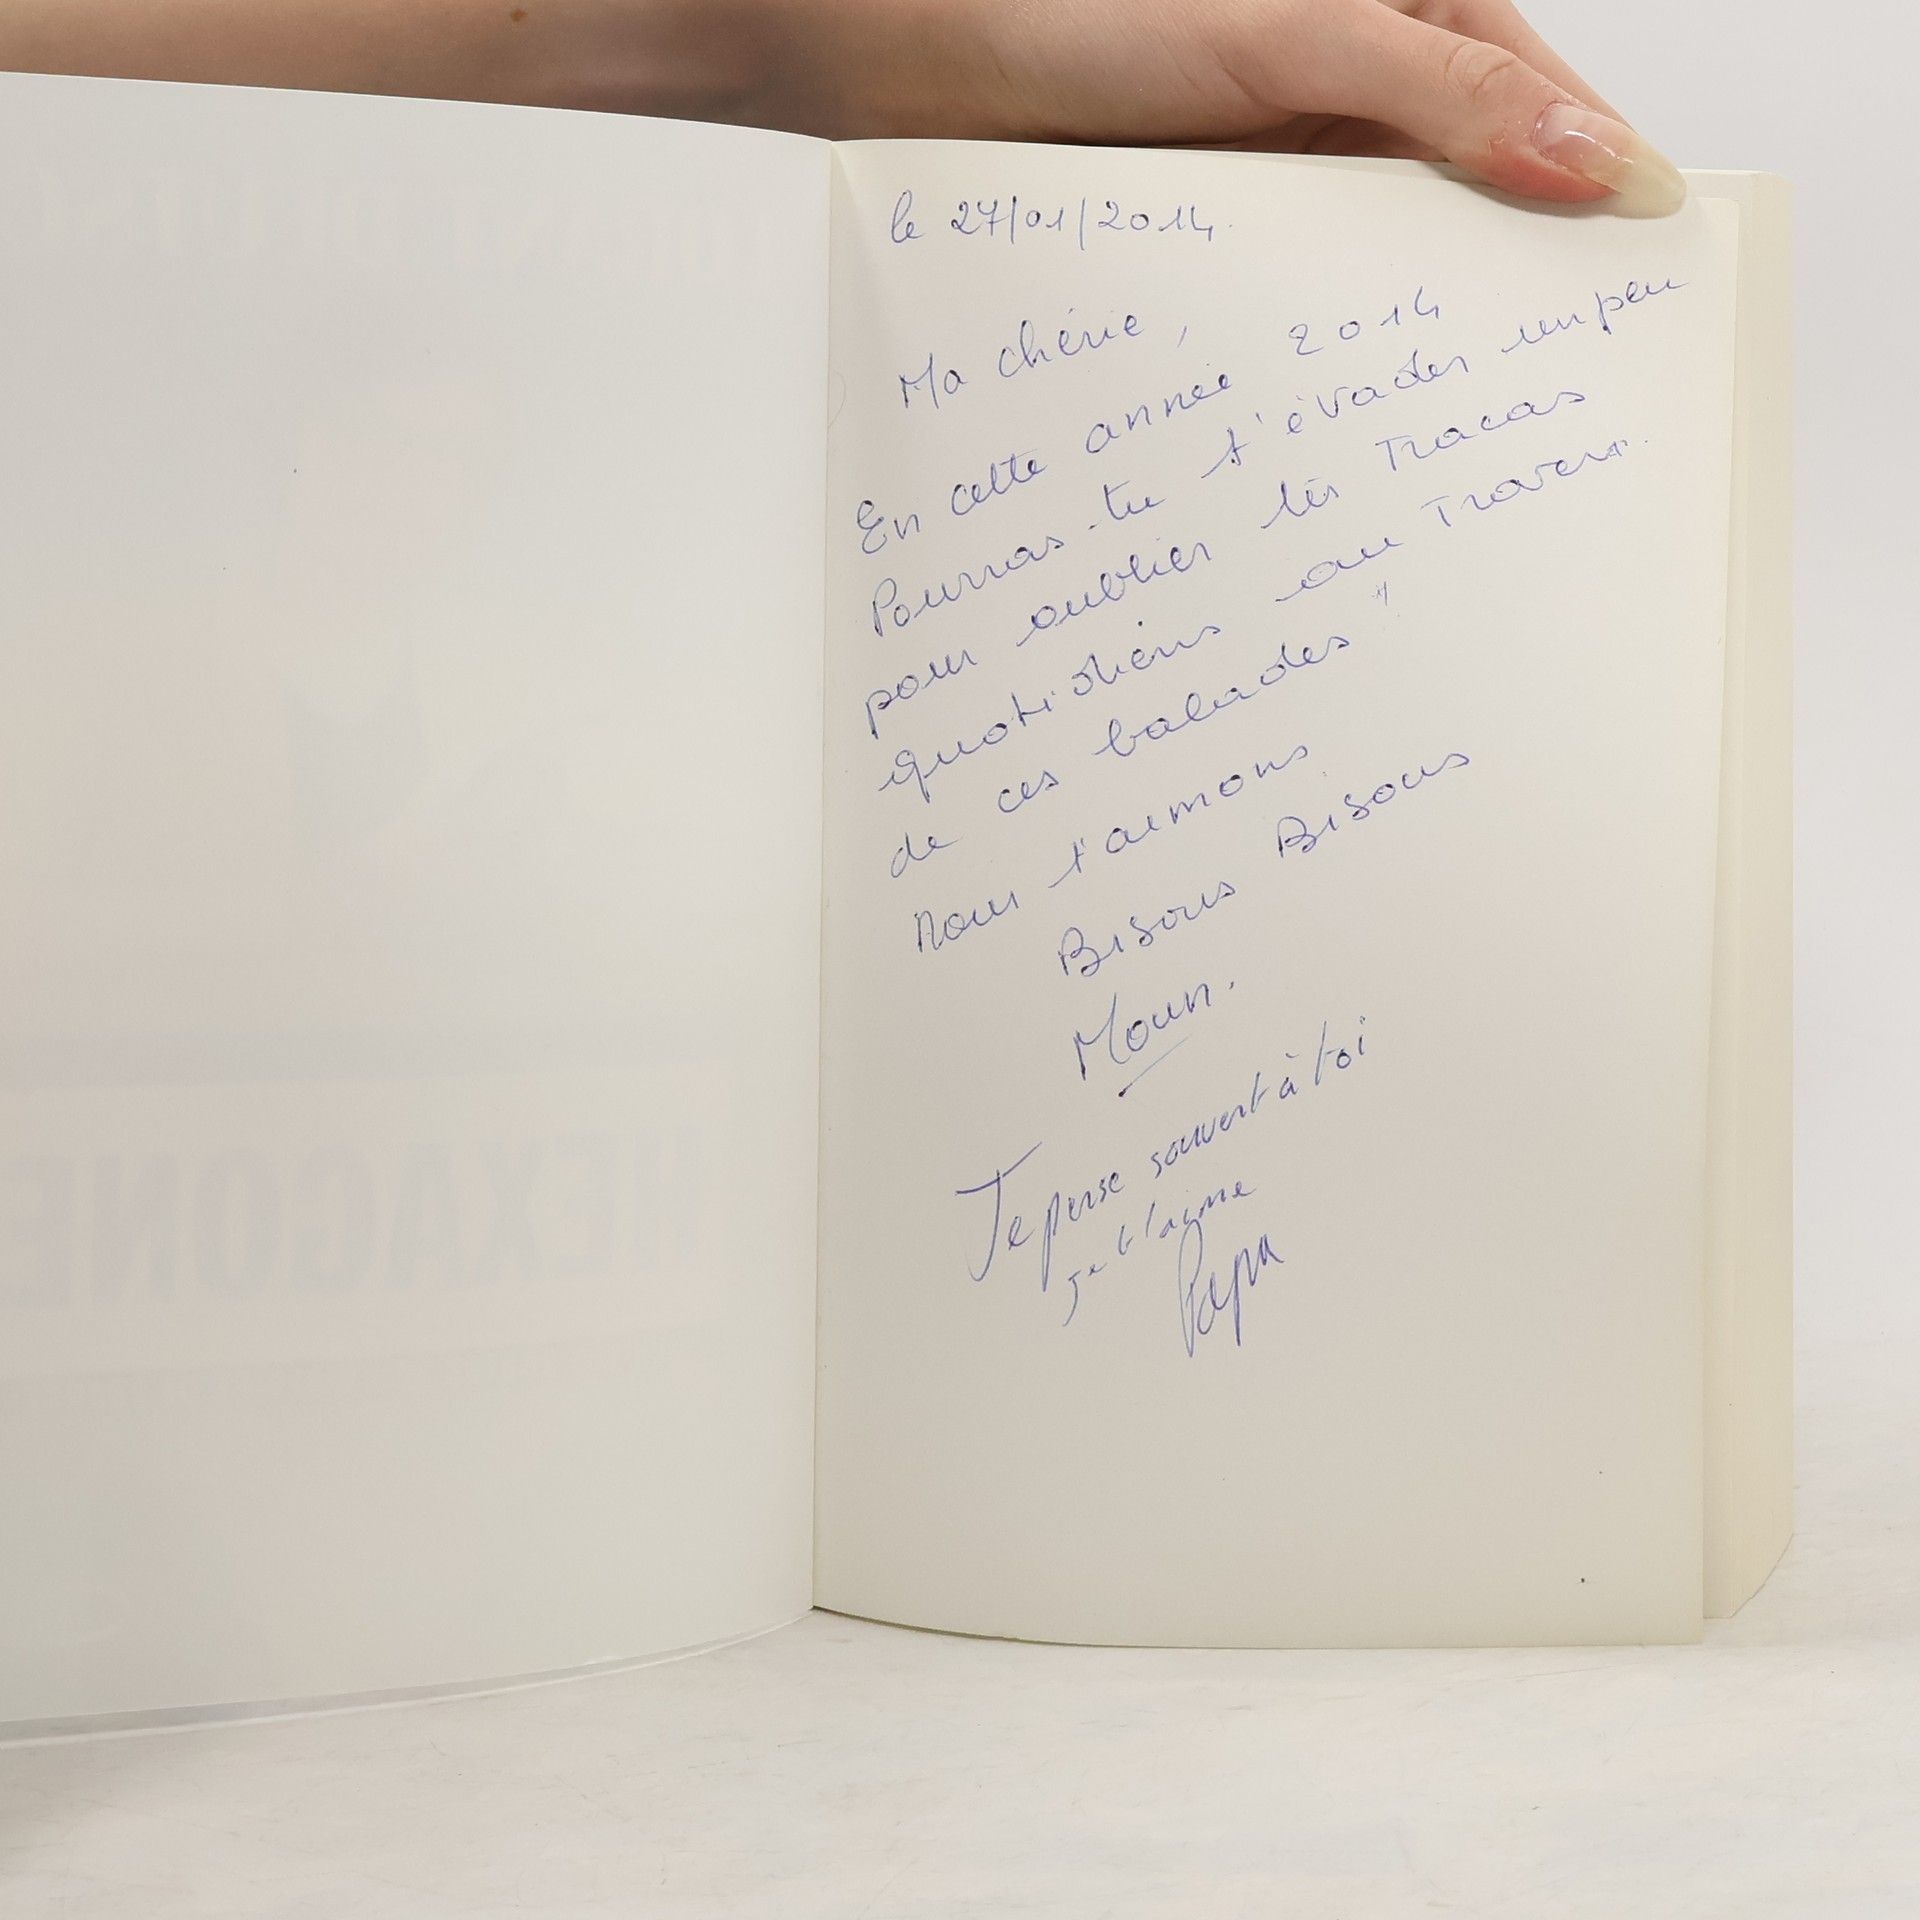 le 27/01/2014.
Ma chérie,
En cette année 2014
Pourras-tu t'évader un peu
pour oublier tes tracas
quotidiens au travers
de ces balades"
Nous t'aimons
Bisous Bisous
Moun.
Je pense souvent à toi
Je t'aime
Papa
HEXAGONE